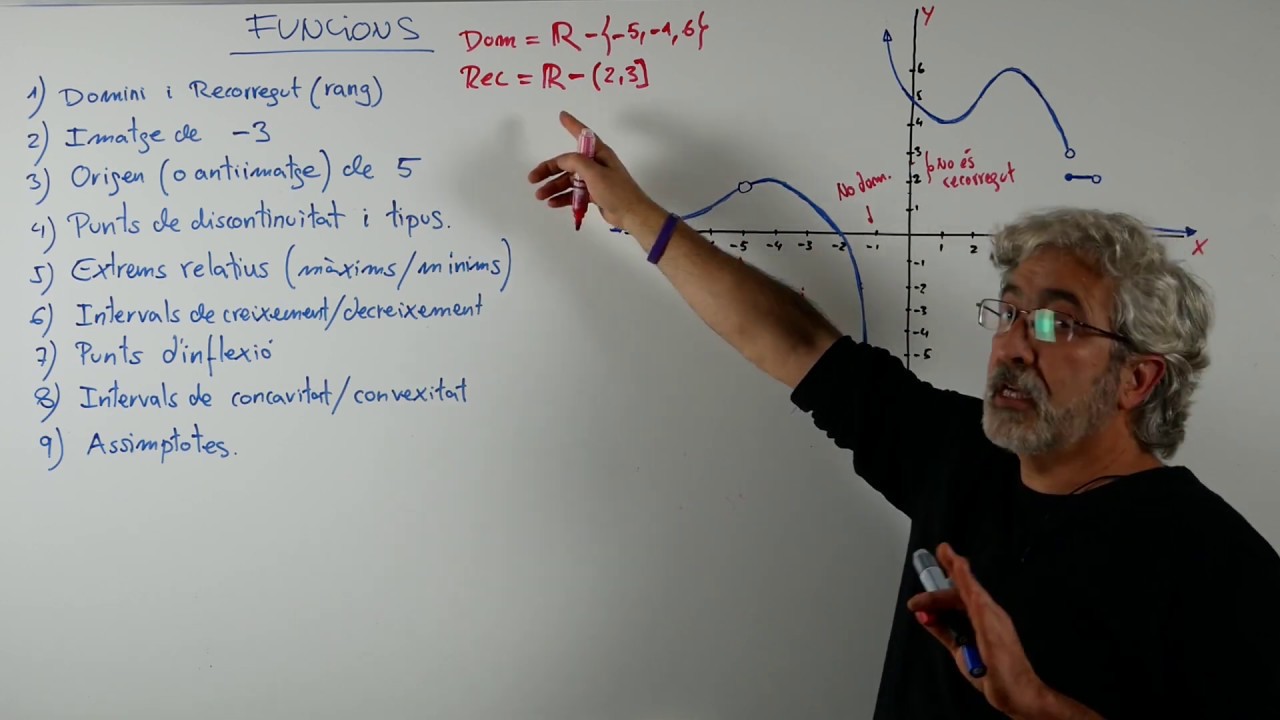 FUNCIONS
Dom = ℝ - {-5, -1, 6}
Rec = ℝ - (2,3]
1) Domini i Recorregut (rang)
2) Imatge de -3
3) Origen (o antiimatge) de 5
4) Punts de discontinuitat i tipus.
5) Extrems relatius (màxims/mínims)
6) Intervals de creixement/decreixement
7) Punts d'inflexió
8) Intervals de concavitat/convexitat
9) Assimptotes.
Y
6
5
4
3
2
1
No és
recorregut
No dom.
-5 -4 -3 -2 -1 1 2
X
-1
-2
-3
-4
-5